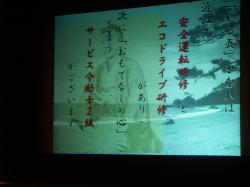 近
安全運転研修と
エコドライブ研修
があり
次に「おもてなしの心」
を養う
サービス介助士2級
がございます